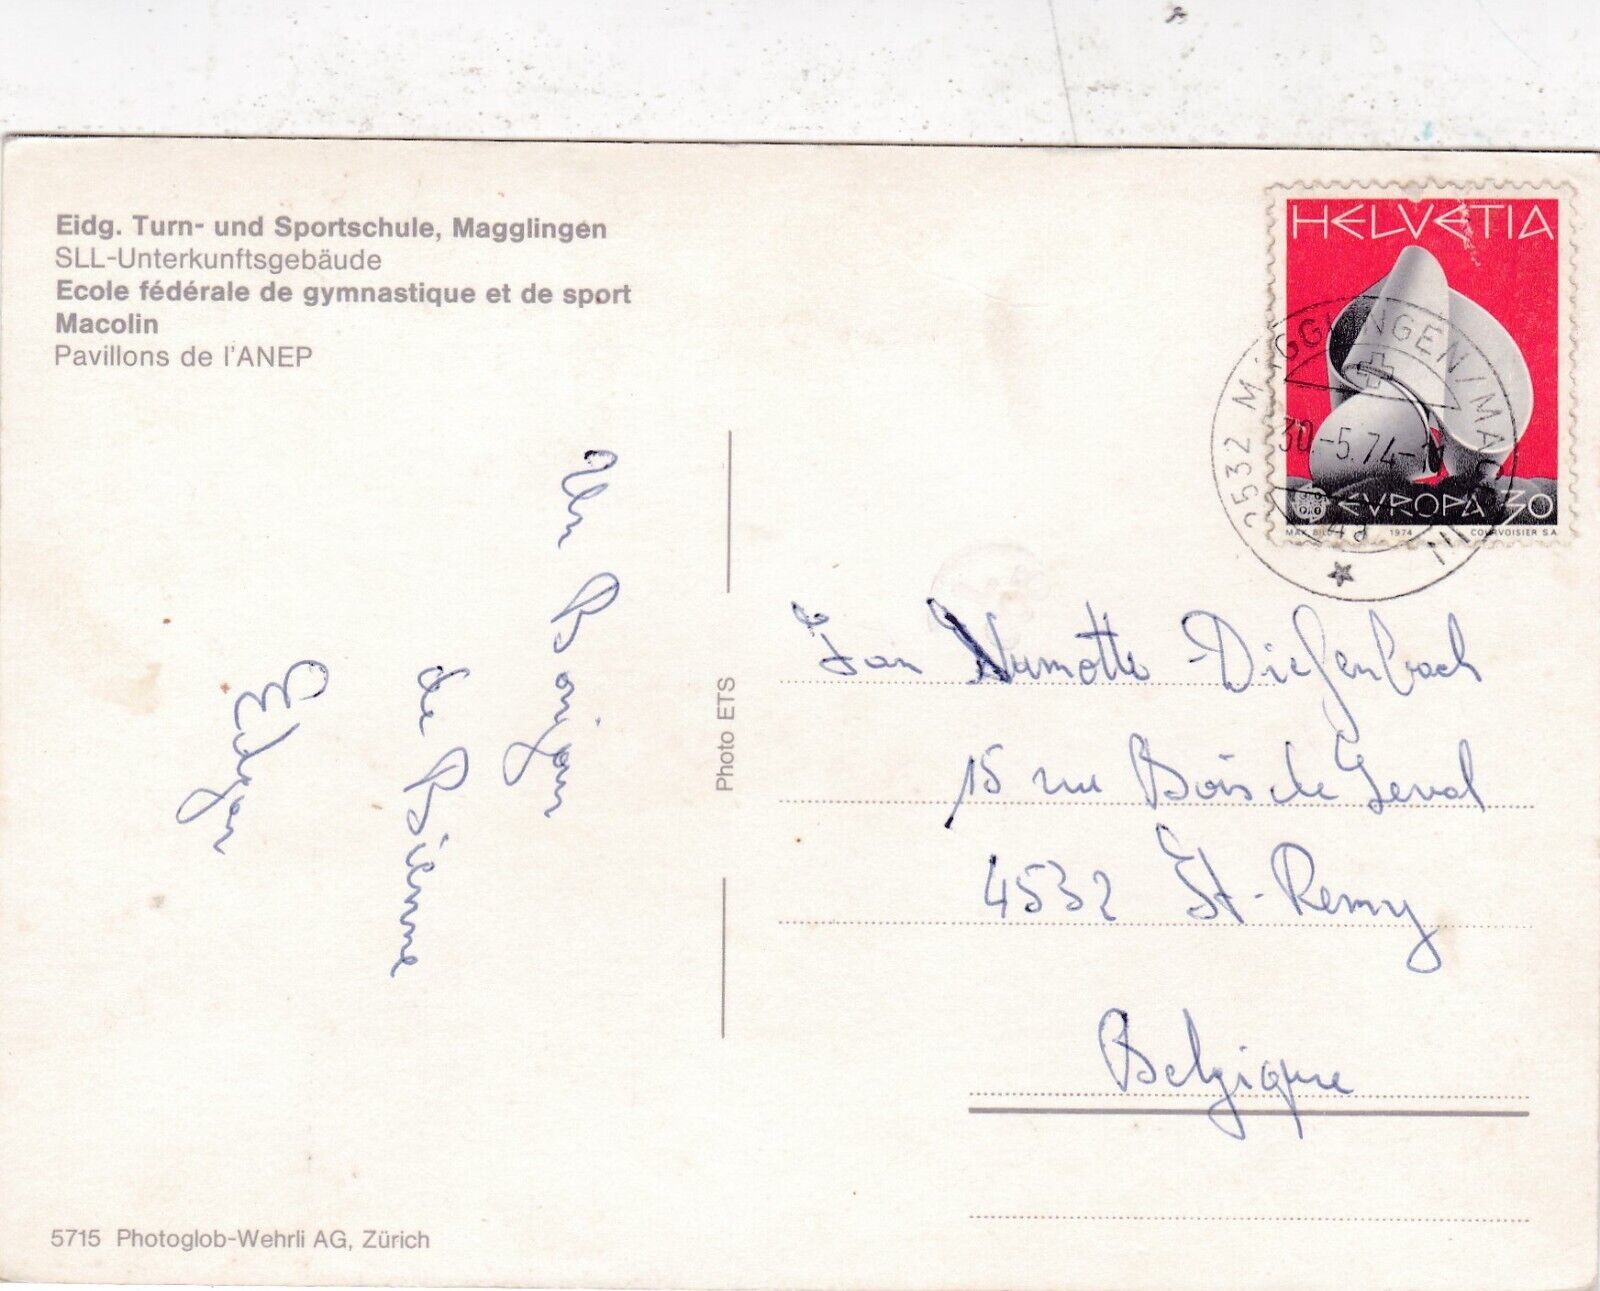 Eidg. Turn- und Sportschule, Magglingen
SLL-Unterkunftsgebäude
Ecole fédérale de gymnastique et de sport
Macolin
Pavillons de l'ANEP
HELVETIA
EVROPA 30
MAX BILL 1974 COURVOISIER S.A
2532 MAGGLINGEN/MACOLIN
30.-5.74-
Un Bonjour
de Bienne
Edgar
Photo ETS
Diefenbach
15 rue Bois de Leval
4532 St-Remy
Belgique
5715 Photoglob-Wehrli AG, Zürich